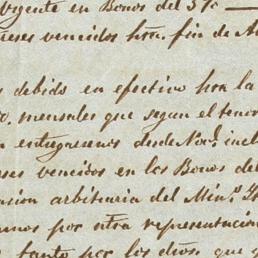 urgente en Bonos del 3%
eses vencidos hta. fin de A
debido en efectivo hta la
mensales que segun el tenor
entreguemos desde Nov.e incl
eses vencidos en los Bonos del
sion arbitraria del Min.o
mos por ntra representación
tanto por los dros. que